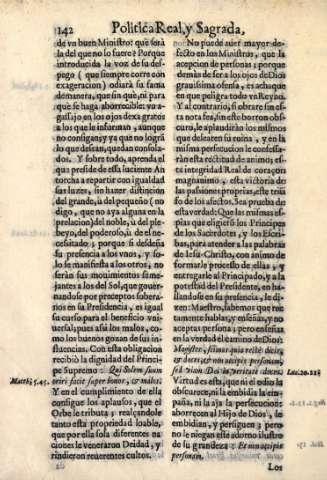 142 Politica Real, y Sagrada,
de vn buen Ministro: que será
la del que no lo fuere? Porque
introducida la voz de su des-
pego ( que siempre corre con
exageracion) odiará su fama
de manera, que sin que, ni para
que se haga aborrecible: ya a-
gassajo en los ojos dexa gratos
a los que le informan, aunque
no consigan; y ya que no logrã
lo que desean, quedan consola-
dos. Y sobre todo, aprenda el
que preside de esta luciente An
torcha a repartir con igualdad
sus luzes, sin hazer distincion
del grande, ù del pequeño ( no
digo, que no aya alguna en la
prelacion) del noble, ù del ple-
beyo, del poderoso, ù de el ne-
cesitado; porque si desdeña
su presencia a los vnos, y so-
lo se manifiesta a los otros, no
serán sus movimientos seme-
jantes a los del Sol, que gouer-
nandose por preceptos sobera-
nios en su Presidencia, es igual
su curso para el beneficio vni-
uersal, pues assi los malos, co-
mo los buenos gozan de sus in-
fluencias. Con esta obligacion
recibiò la dignidad del Princi-
pe Supremo: Qui Solem suum
Matth. 5. 45. oriri facit super bonos, & malos.
Y en el cumplimiento de ella
consigue los aplausos, que el
Orbe le tributa; realçandole
tanto esta propriedad loable,
que por ella sola diferentes na-
ciones le veneraron Deidad, y
rindieron reuerentes cultos.
No puede auer mayor de-
fecto en los Ministros, que la
acepcion de personas; porque
demàs de ser a los ojos de Dios
grauissima ofensa, es achaque
en que peligra todo vn Reyno.
Y al contrario, si obrare sin es-
ta nota fea, sin este borron obs-
curo, le aplaudiràn los mismos
que desearen su ruina, y en la
misma persecucion le confessa-
ràn esta rectitud de animo; es-
ta integridad Real de coraçon
magnanimo; esta victoria de
las passiones proprias, este triũ
fo de los afectos. Sea prueba de
esta verdad: Que las mismas es-
pias que eligierò los Principes
de los Sacerdotes, y los Escri-
bas, para atender a las palabras
de Iesu-Christo, con animo de
formarle processo de ellas; y
entregarle al Principado, y a la
potestad del Presidente, en ha-
llandose en su presencia, le di-
xeron: Maestro, sabemos que rec
tamente hablas, y enseñas; y no
aceptas persona; pero enseñas
en la verdad el camino de Dios:
Magister, scimus quia rectè dicis,
& doces, & non accipis personam,
sed viam Dei in veritate doces. Luc. 20. 21.
Virtud es esta, que ni el odio la
obscurece, ni la embidia la em-
paña, ni la aja la persecucion:
aborrecen al Hijo de Dios, le
embidian, y persiguen; pero
no le niegan este adorno ilustre
de su grandeza: Et non accipis
personam.
Los